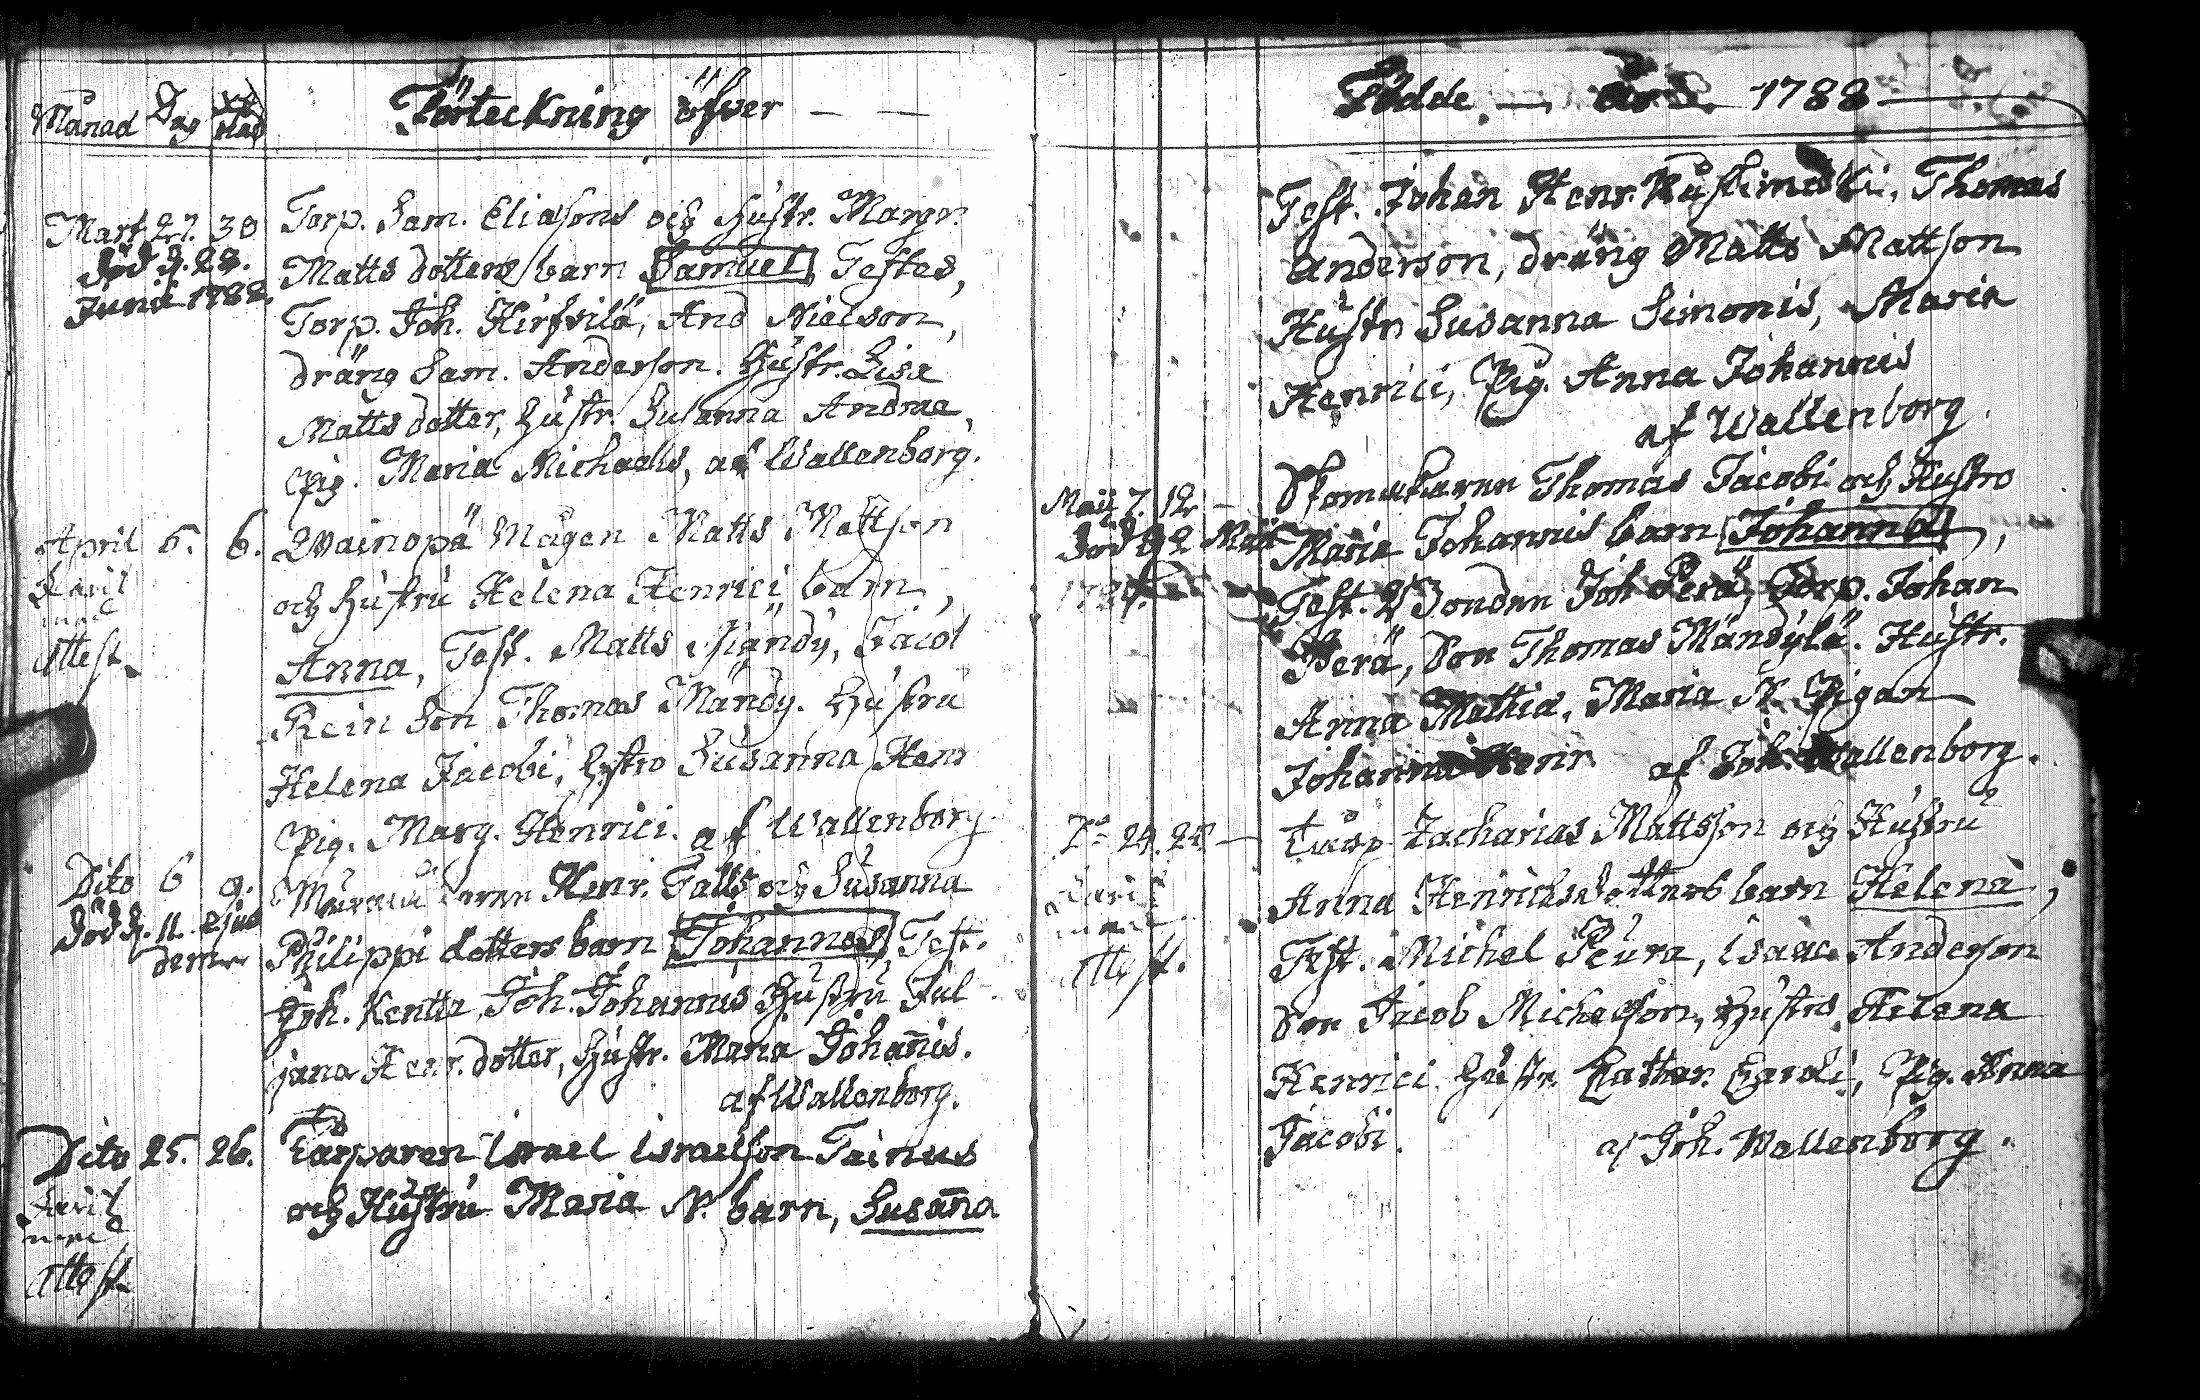 Månad Dag
Förteckning öfver — —
Mart. 27. 30 Torp. Sam. Eliasons och Hustr. Margr.
Död d. 28. Matts dotters barn Samuel, Testes,
Junii 1788. Torp. Joh. Hirfvilä, And Nielson,
dräng Sam. Anderson. Hustr. Lisa
Matts dotter, Hustr. Susanna Andræ,
Pig. Maria Michaelis, af Wallenborg.
April 5. 6. Wainopä Mågen Matts Mattson
och Hustru Helena Henrici barn,
attest. Anna, Test. Matts Mändy, Jacob
Rein Son Thomas Mändy. Hustru
Helena Jacobi, Hstro Susanna Henr
Pig. Marg. Henrici. af Wallenborg
Dito 6 9. Henr. Talls och Susanna
Död d. 11. Philippi dotters barn Johannes, Test.
Joh. Kentta, Joh. Johannis Hustru Jul
jana Henr. dotter, Hustr. Maria Johan̄is.
af Wallenborg.
Dito 25. 26. Torparen Israel Israelson Tainus
och Hustru Maria N. barn, Susan̄a
attest.
Födde. — 1788 —
Test. Johan Henr. Thomas
Anderson, dräng Matts Mattson
Hustr. Susanna Simonis, Maria
Henrici, Pig. Anna Johannis
af Wallenborg.
Maii 7. 12 — Skomakaren Thomas Jacobi och Hustro
Död Maria Johannis barn Johanna,
Test. Bonden Joh Perä, Torp. Johan
Perä, Son Thomas Mändylä. Hustr.
Anna Mathiæ, Maria N. Pigan
Johanna Henr. af Joh. Wallenborg.
Do 24. 25 — Zacharias Mattsson och Hustru
Anna Henricsdotters barn Helena,
Test. Michel Peura, Isaac Anderson
attest. Son Jacob Michelson, Hustro Helena
Henrici Hustr. Cathar. Pig. Anna
Jacobi. af Joh. Wallenborg.